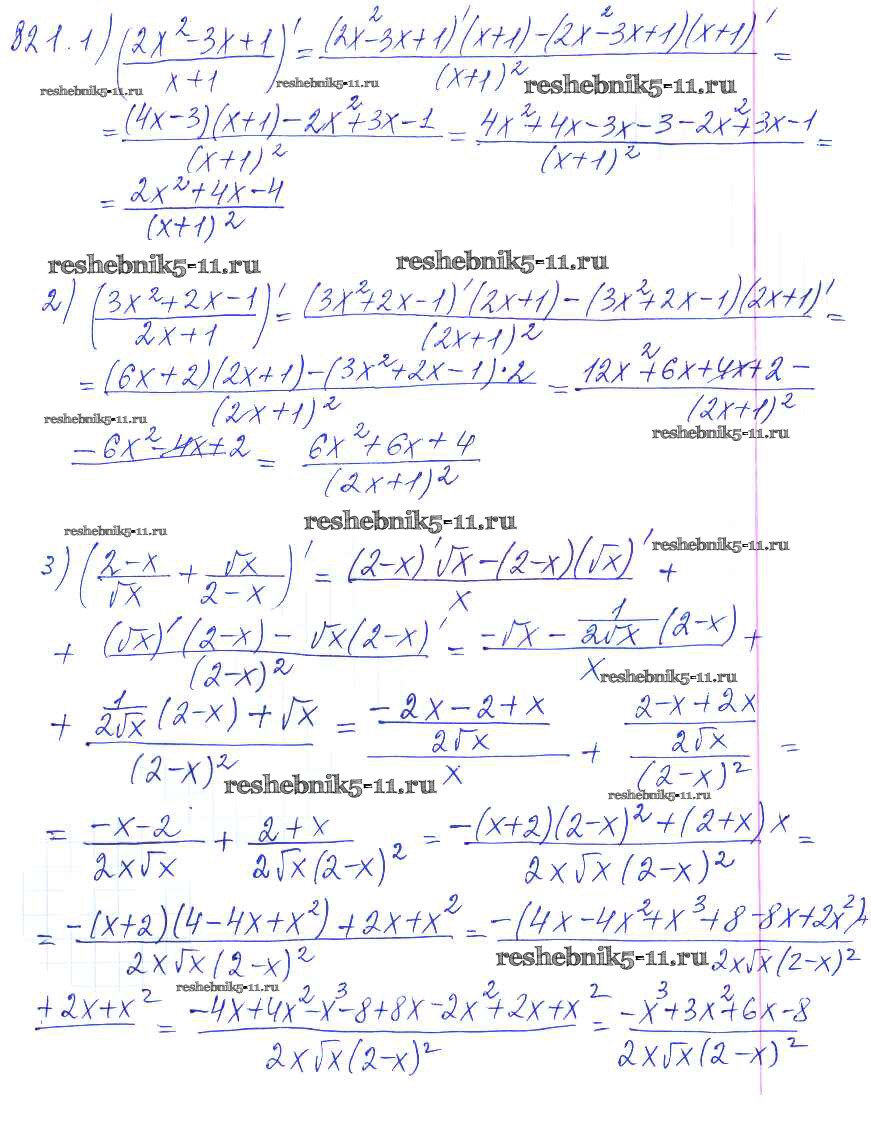 821. 1) ((2x²-3x+1)/(x+1))' = ((2x²-3x+1)'(x+1)-(2x²-3x+1)(x+1)')/(x+1)² =
reshebnik5-11.ru reshebnik5-11.ru reshebnik5-11.ru
= ((4x-3)(x+1)-2x²+3x-1)/(x+1)² = (4x²+4x-3x-3-2x²+3x-1)/(x+1)² =
= (2x²+4x-4)/(x+1)²
reshebnik5-11.ru reshebnik5-11.ru
2) ((3x²+2x-1)/(2x+1))' = ((3x²+2x-1)'(2x+1)-(3x²+2x-1)(2x+1)')/(2x+1)² =
= ((6x+2)(2x+1)-(3x²+2x-1)·2)/(2x+1)² = (12x²+6x+4x+2-)/(2x+1)²
reshebnik5-11.ru reshebnik5-11.ru
-6x²-4x+2 = (6x²+6x+4)/(2x+1)²
reshebnik5-11.ru
reshebnik5-11.ru reshebnik5-11.ru
3) ((2-x)/√x + √x/(2-x))' = ((2-x)'√x-(2-x)(√x)')/x +
+ ((√x)'(2-x)-√x(2-x)')/(2-x)² = (-√x-1/(2√x)(2-x))/x +
reshebnik5-11.ru
+ (1/(2√x)(2-x)+√x)/(2-x)² = ((-2x-2+x)/(2√x))/x + ((2-x+2x)/(2√x))/(2-x)² =
reshebnik5-11.ru reshebnik5-11.ru
= (-x-2)/(2x√x) + (2+x)/(2√x(2-x)²) = (-(x+2)(2-x)²+(2+x)x)/(2x√x(2-x)²) =
= (-(x+2)(4-4x+x²)+2x+x²)/(2x√x(2-x)²) = (-(4x-4x²+x³+8-8x+2x²)+)/(2x√x(2-x)²)
reshebnik5-11.ru reshebnik5-11.ru
+2x+x² = (-4x+4x²-x³-8+8x-2x²+2x+x²)/(2x√x(2-x)²) = (-x³+3x²+6x-8)/(2x√x(2-x)²)